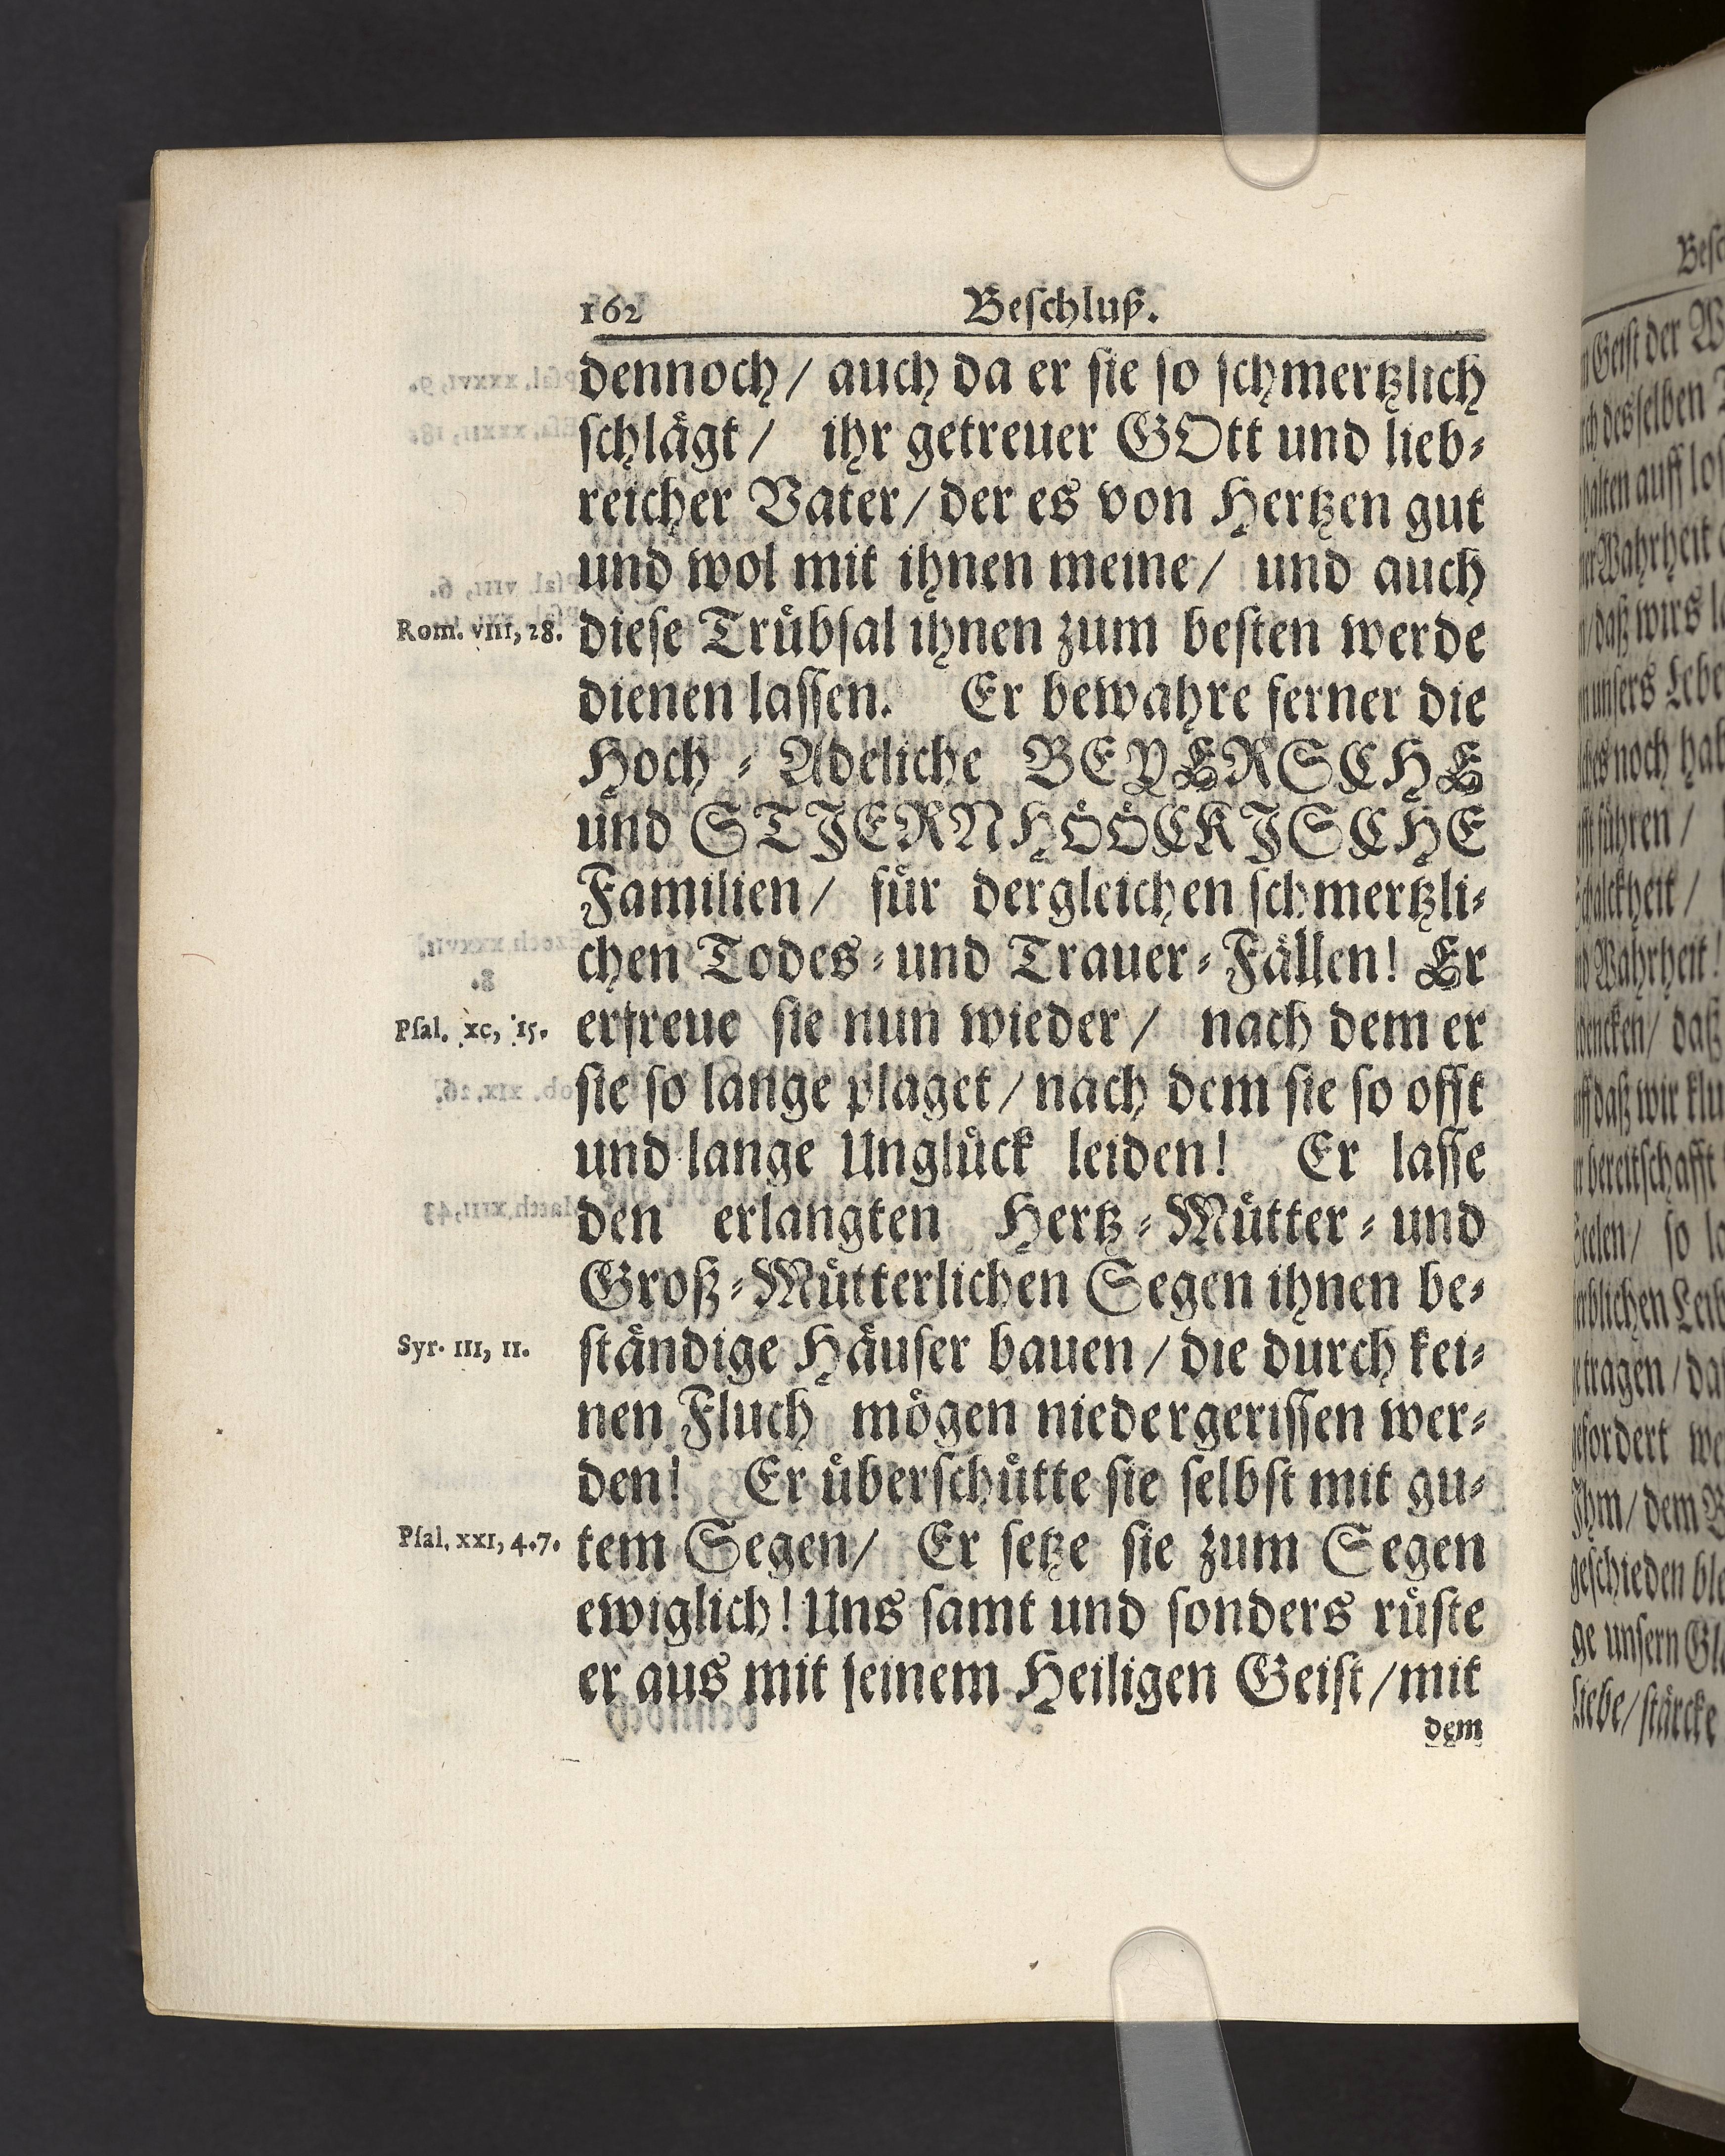 162 Beſchluß.
dennoch/ auch da er ſie ſo ſchmertzlich
ſchlaͤgt/ ihr getreuer GOtt und lieb⸗
reicher Vater/ der es von Hertzen gut
und wol mit ihnen meine/ und auch
Rom. VIII, 28. dieſe Truͤbſal ihnen zum beſten werde
dienen laſſen. Er bewahre ferner die
Hoch⸗Adeliche BEYERSCHE
und STJERNHOͤOͤCKJSCHE
Familien/ fuͤr dergleichen ſchmertzli⸗
chen Todes⸗und Trauer⸗Faͤllen! Er
Pſal. XC, 15. erfreue ſie nun wieder/ nach dem er
ſie ſo lange plaget/ nach dem ſie ſo offt
und lange Ungluͤck leiden! Er laſſe
den erlangten Hertz⸗Muͤtter⸗und
Groß⸗Muͤtterlichen Segen ihnen be⸗
Syr. III, 11. ſtaͤndige Haͤuſer bauen/ die durch kei⸗
nen Fluch moͤgen niedergeriſſen wer⸗
den! Er uͤberſchuͤtte ſie ſelbſt mit gu⸗
Pſal. XXI, 4.7. tem Segen/ Er ſetze ſie zum Segen
ewiglich! Uns ſamt und ſonders ruͤſte
er aus mit ſeinem Heiligen Geiſt/ mit
dem